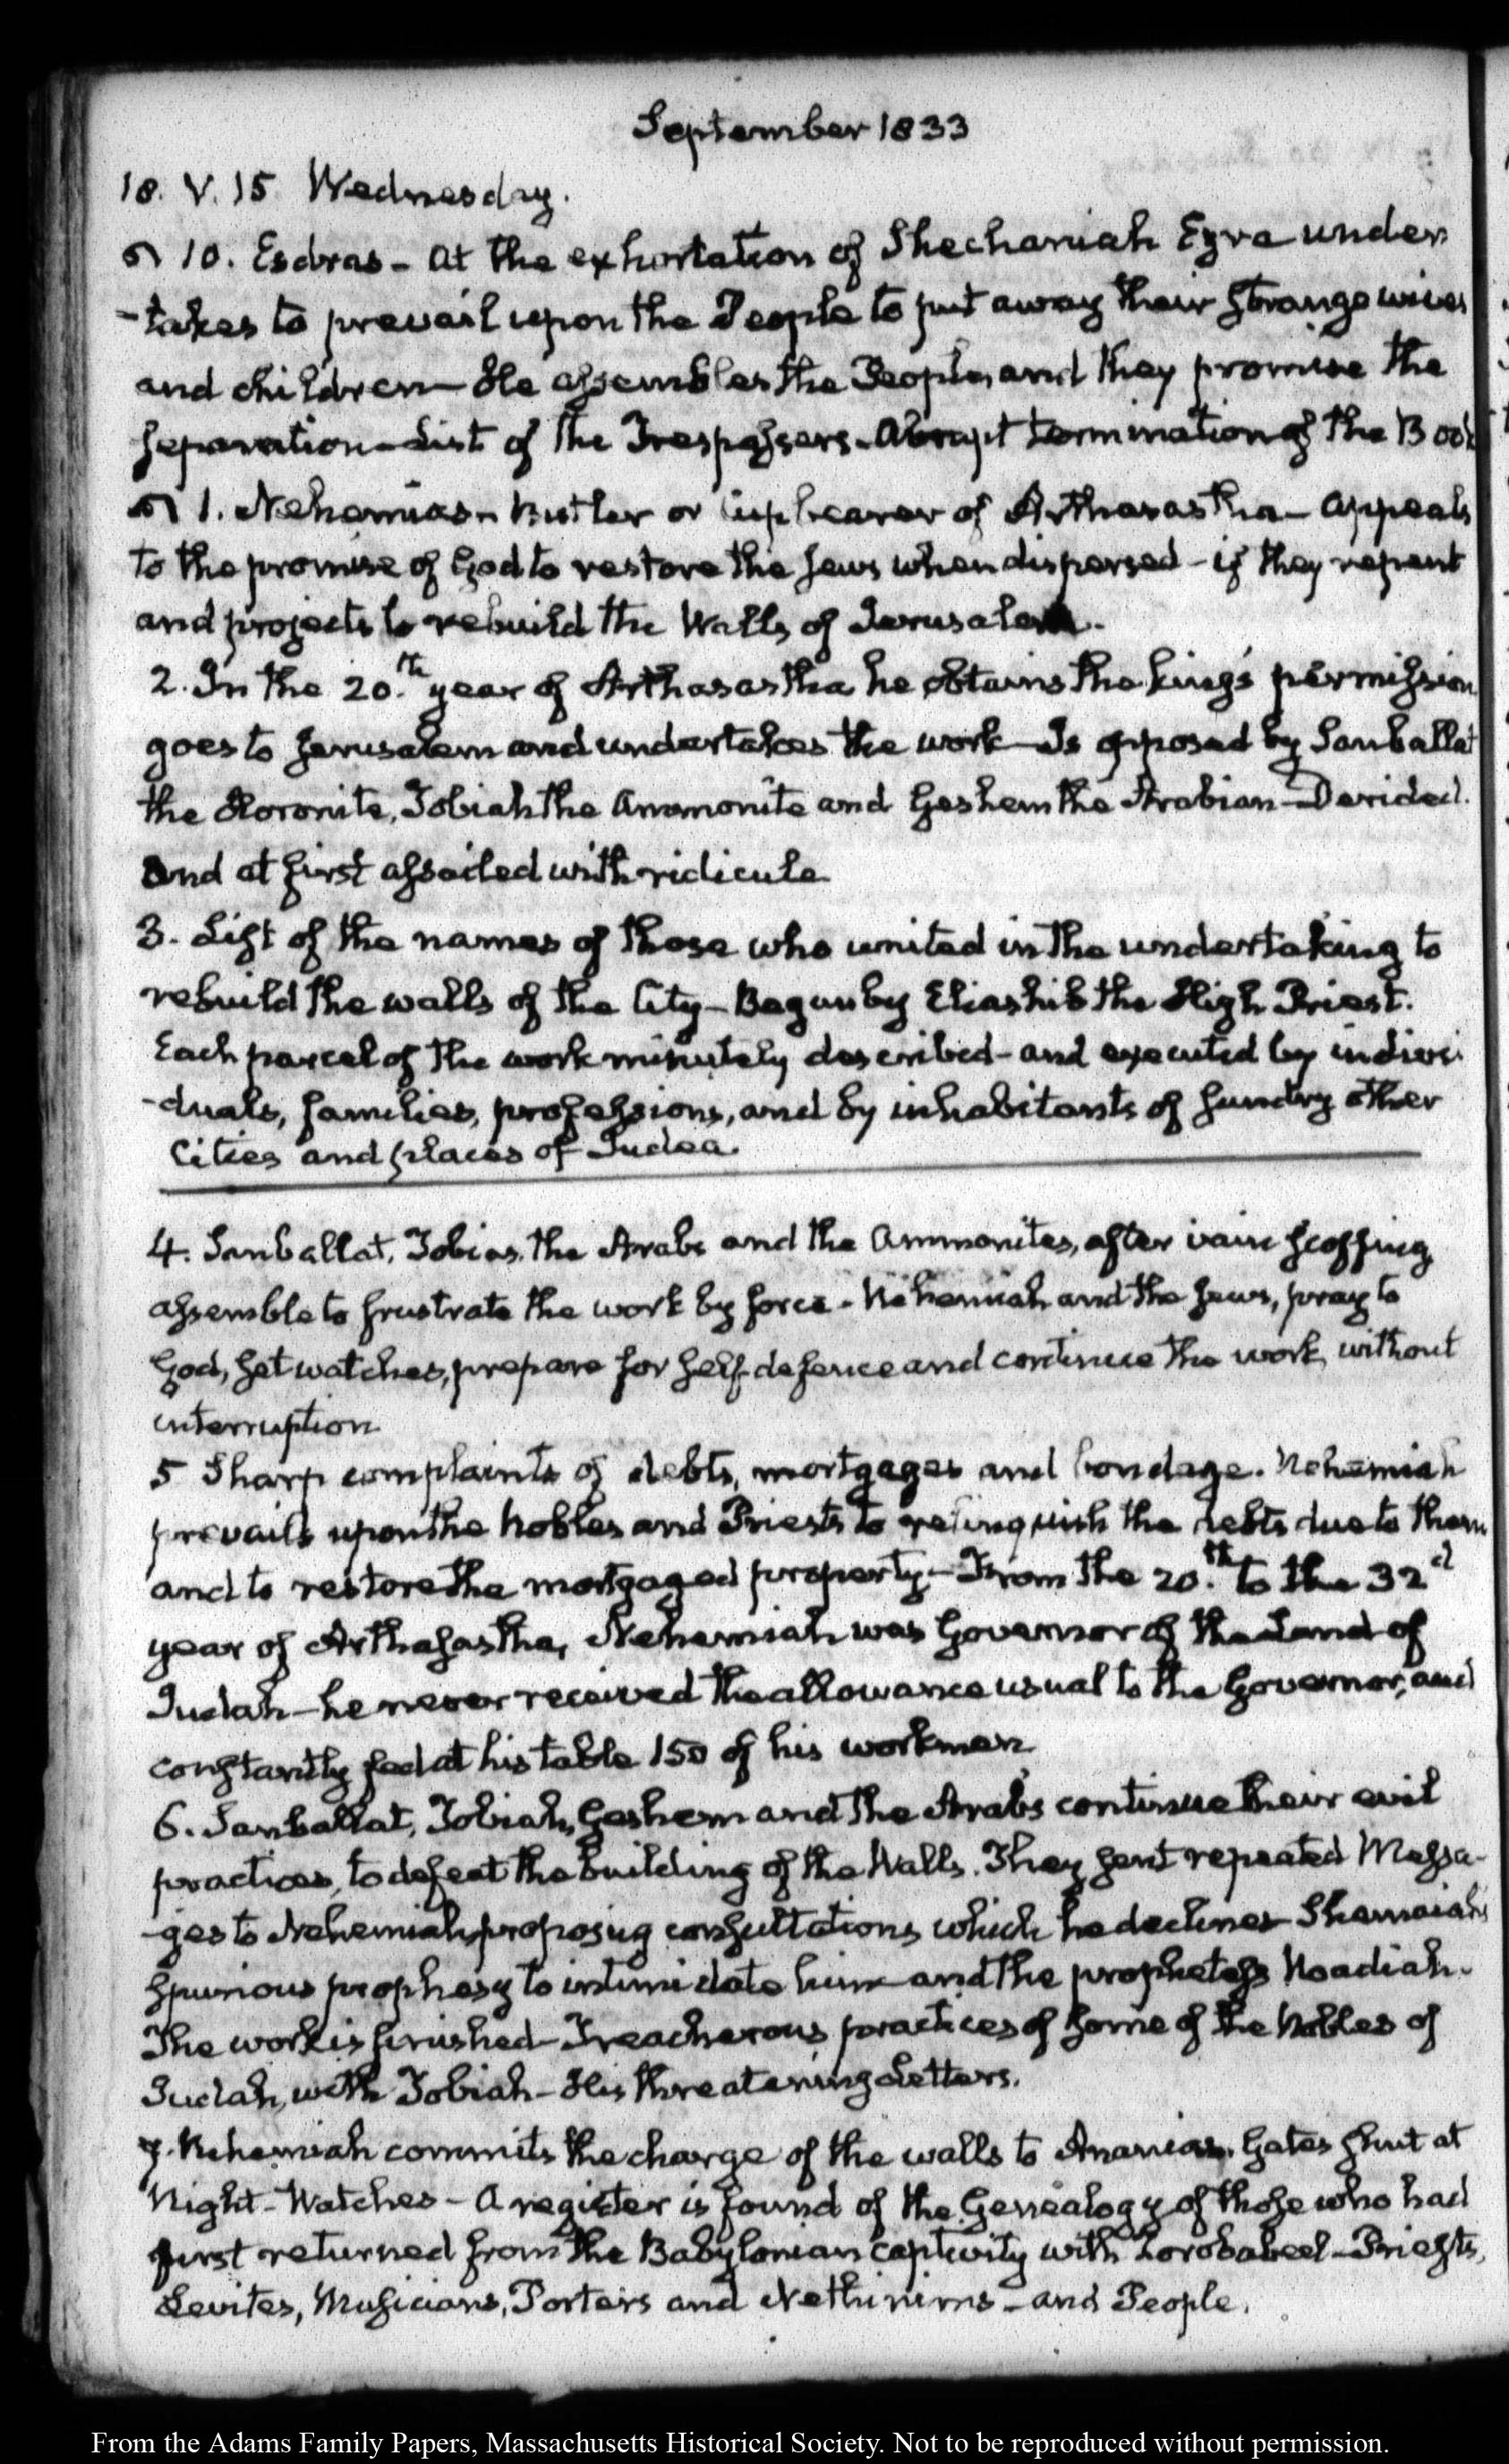 September 1833
18. V. 15 Wednesday.
10. Esdras - At the exhortation of Shechaniah Ezra under
-takes to prevail upon the People to put away their strange wives
and children - He assembles the People, and they promise the
separation - List of the Trespassers - Abrupt termination of the Book
1. Nehemias - Butler or Cupbearer of Arthasastha - appeals
to the promise of God to restore the Jews when dispersed - if they repent
and projects to rebuild the Walls of Jerusalem.
2. In the 20.th year of Arthasastha he obtains the king's permission
goes to Jerusalem and undertakes the work - Is opposed by Sanballat
the Horonite, Tobiah the Ammonite and Geshem the Arabian - Derided.
and at first assailed with ridicule
3. List of the names of those who united in the undertaking to
rebuild the walls of the City - Begun by Eliashib the High Priest.
Each parcel of the work minutely described - and executed by indivi
-duals, families, professions, and by inhabitants of sundry other
Cities and places of Judea.
4. Sanballat, Tobias, the Arabs and the Ammonites, after vain scoffing
assemble to frustrate the work by force - Nehemiah and the Jews, pray to
God, set watches, prepare for self-defence and continue the work, without
interruption
5 Sharp complaints of debts, mortgages and bondage. Nehemiah
prevails upon the Nobles and Priests to relinquish the debts due to them
and to restore the mortgaged property - From the 20.th to the 32d
year of Arthasastha, Nehemiah was Governor of the Land of
Judah - he never received the allowance usual to the Governor, and
constantly fed at his table 150 of his workmen
6. Sanballat, Tobiah, Geshem and the Arabs continue their evil
practices, to defeat the building of the Walls. They sent repeated Messa-
-ges to Nehemiah, proposing consultations, which he declines - Shemaiah's
spurious prophesy to intimidate him - and the prophetess Noadiah.
The work is finished - Treacherous practices of some of the Nobles of
Judah, with Tobiah - His threatening Letters.
7. Nehemiah commits the charge of the walls to Ananias. Gates shut at
Night - Watches - A register is found of the Genealogy of those who had
first returned from the Babylonian captivity with Zorobabel - Priests,
Levites, Musicians, Porters and Nethinims - and People.
From the Adams Family Papers, Massachusetts Historical Society. Not to be reproduced without permission.